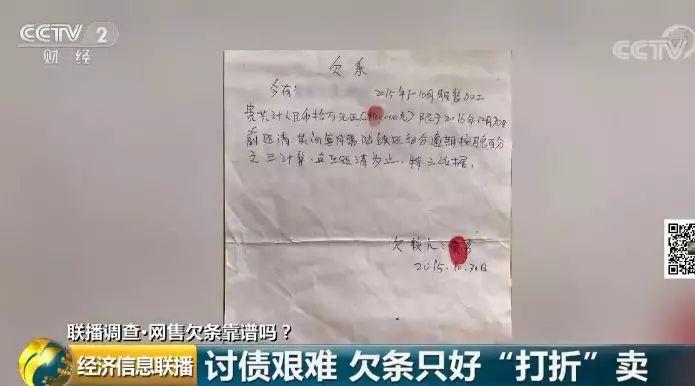 CCTV 2
财经
CCTV
欠条
今有 2015年 10月服装加工
费共计人民币拾万元正( 000元)限于2016年 月30日
前还清 其间每月需陆续还部分逾期按 百分
之三计算,直至还清为止,特立此据。
欠款人:
2015.10.30日
联播调查·网售欠条靠谱吗?
经济信息联播
讨债艰难 欠条只好“打折”卖